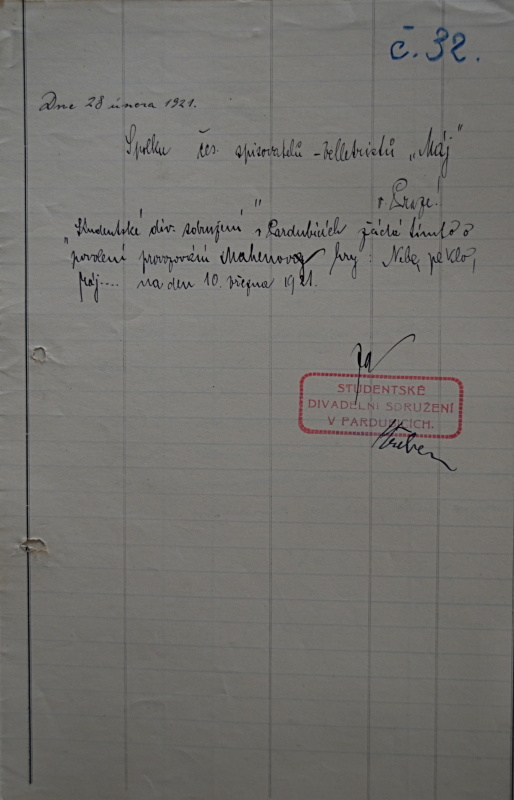 č. 32.
Dne 28 února 1921.
Spolku čes. spisovatelů - belletristů „Máj"
v Praze!
„Studentské div. sdružení" v Pardubicích žádá tímto o
povolení provozování Mahenovy hry: Nebe, peklo,
ráj.... na den 10. března 1921.
Za
STUDENTSKÉ
DIVADELNÍ SDRUŽENÍ
V PARDUBICÍCH.